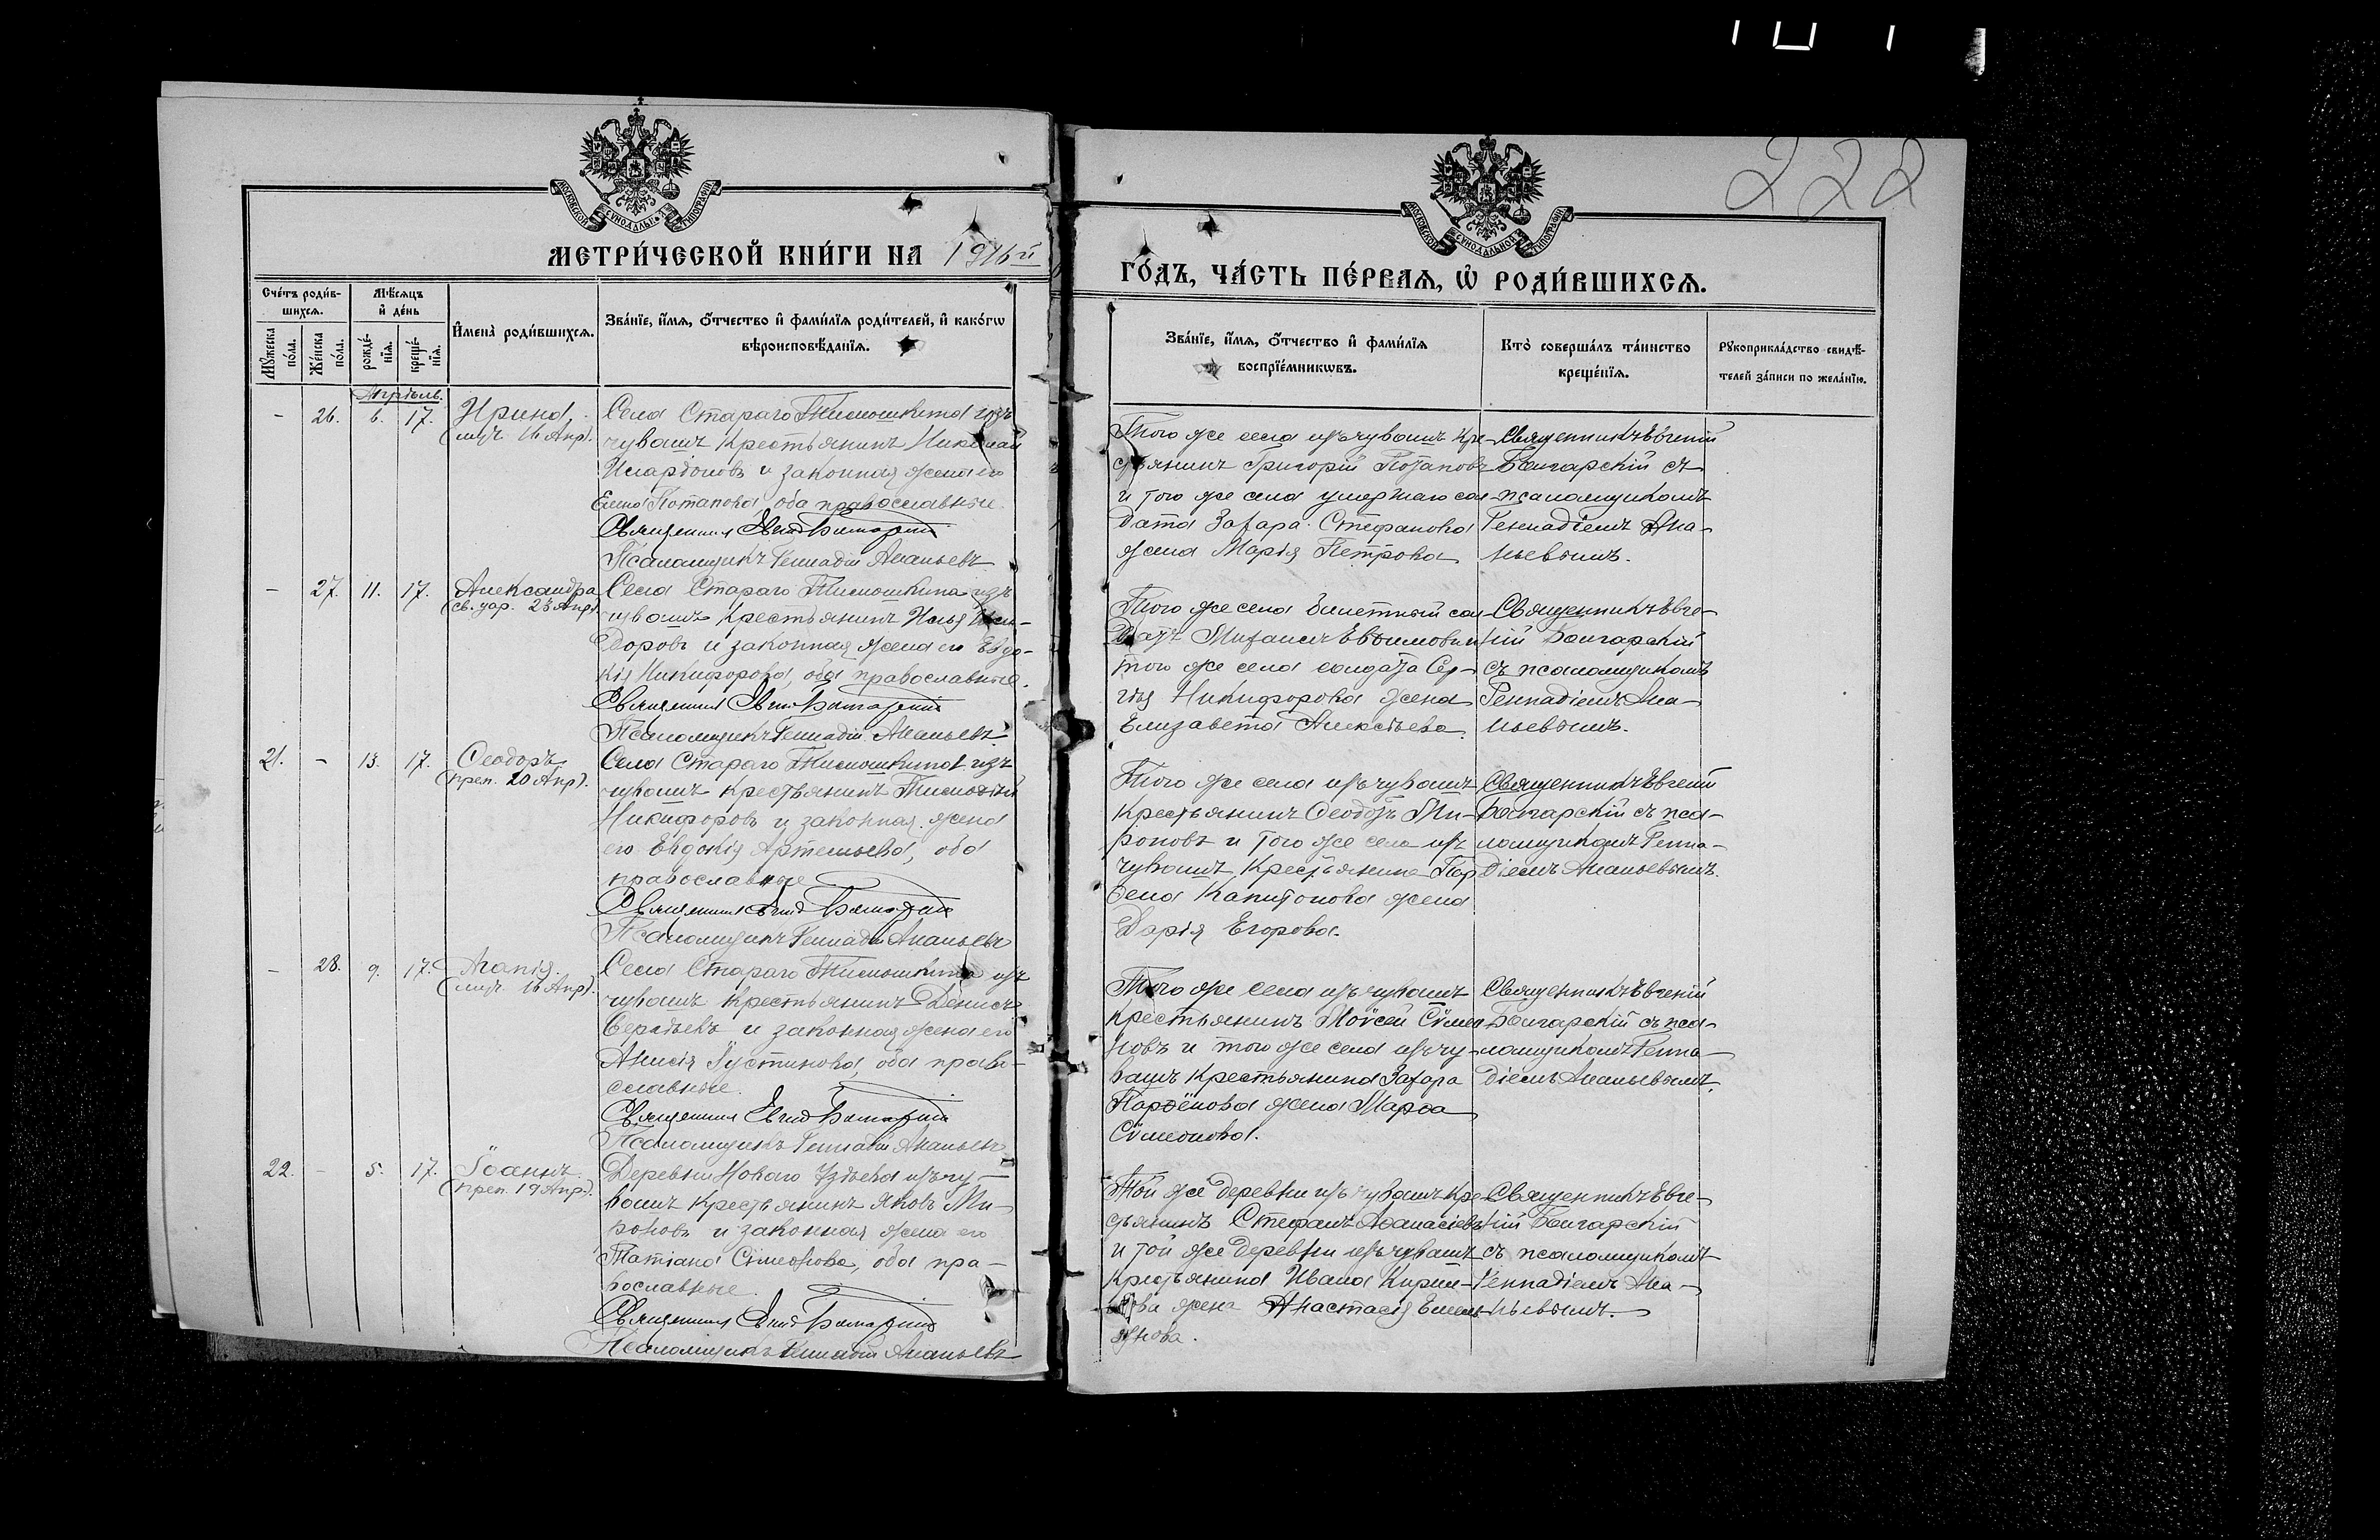 222
МЕТРИ́ЧЕСКОЙ КНИ́ГИ НА 1916й
ГО́ДЪ, ЧА́СТЬ ПЕ́РВАЯ, Ѽ РОДИ́ВШИХСЯ.
Сче́тъ роди́в-
шихся.
Мꙋ́жеска по́ла.
Же́нска по́ла.
Мѣ́сяцъ
и҆ де́нь
рожде́-
нїя.
креще́-
нїя.
И҆мена̀ роди́вшихся.
Зва́нїе, и҆́мя, ѻ҆́тчество и҆ фами́лїя роди́телей, и҆ како́гѡ
вѣроисповѣ́данїя.
Зва́нїе, и҆́мя, ѻ҆́тчество и҆ фами́лїя
воспрїе́мникѡвъ.
Кто̀ соверша́лъ та́инство
креще́нїя.
Рꙋкоприкла́дство свидѣ́-
телей за́писи по жела́нїю.
Апрѣль.
– 26. 6. 17. Ирина.
(муч. 16 Апр).
Села Стараго Тимошкина изъ
чувашъ крестьянинъ Николай
и законная жена его
Елена Потапова, оба православные.
Священникъ Евгеній Болгарскій
Псаломщикъ Геннадій Ананьевъ
Того же села изъ чувашъ кре-
стьянинъ Григорій Потаповъ
и того же села умершаго сол-
дата Захара Стефанова
жена Марія Петрова
Священникъ Евгеній
Болгарскій съ
псаломщикомъ
Геннадіемъ Ана-
ньевымъ.
– 27. 11. 17. Александра
(св. цар. 23 Апр).
Села Стараго Тимошкина изъ
чувашъ крестьянинъ Илья Иси-
доровъ и законная жена его Евдо-
кія Никифорова, оба православные.
Священникъ Евгеній Болгарскій
Псаломщикъ Геннадій Ананьевъ.
Того же села билетный сол-
датъ Михаилъ Евѳимовъ и
того же села солдата Сер-
гѣя Никифорова жена
Елизавета Алексѣева.
Священникъ Евге-
ній Болгарскій
съ псаломщикомъ
Геннадіемъ Ана-
ньевымъ.
21. – 13. 17. Ѳеодоръ
(преп. 20 Апр).
Села Стараго Тимошкина изъ
чувашъ крестьянинъ Тимоѳей
Никифоровъ и законная жена
его Евдокія Артемьева, оба
православные
Священникъ Евгеній Болгарскій
Псаломщикъ Геннадій Ананьевъ
Того же села изъ чувашъ
крестьянинъ Ѳеодоръ Ми-
роновъ и того же села изъ
чувашъ крестьянина Пар
ѳена Капитонова жена
Дарія Егорова.
Священникъ Евгеній
Болгарскій съ пса-
ломщикомъ Генна-
діемъ Ананьевымъ.
– 28. 9. 17. Агапія.
(муч. 16 Апр).
Села Стараго Тимошкина изъ
чувашъ крестьянинъ Денисъ
Сергѣевъ и законная жена его
Анисія Іустинова, оба право-
славные.
Священникъ Евгеній Болгарскій
Псаломщикъ Геннадій Ананьевъ
Того же села изъ чувашъ
крестьянинъ Моѵсей Сѵмео
новъ и того же села изъ чу-
вашъ крестьянина Захара
Парѳёнова жена Марѳа
Сѵмеонова.
Священникъ Евгеній
Болгарскій съ пса-
ломщикомъ Генна-
діемъ Ананьевымъ.
22. – 5. 17. Іоаннъ.
(преп. 19 Апр.).
Деревни Новаго Уздѣева изъ чу-
вашъ крестьянинъ Яковъ Ми-
роновъ и законная жена его
Татіана Сімеонова, оба пра-
вославные.
Священникъ Евгеній Болгарскій
Псаломщикъ Геннадій Ананьевъ
Той же деревни изъ чувашъ кре-
стьянинъ Стефанъ Аѳанасіевъ
и той же деревни изъ чувашъ
крестьянина Ивана Кирил-
лова жена Анастасія Емель
янова.
Священникъ Евге-
ній Болгарскій
съ псаломщикомъ
Геннадіемъ Ана-
ньевымъ.